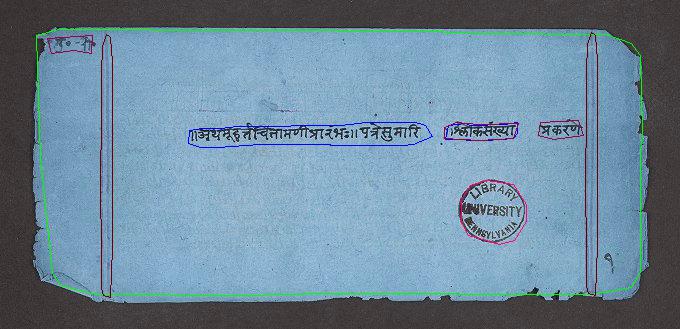 ॥अथमूहुर्तचिंतामणीप्रारंभः॥ पत्रेसुमारि ॥श्लोकसंख्या प्रकरणे
LIBRARY
UNIVERSITY
PENNSYLVANIA
१